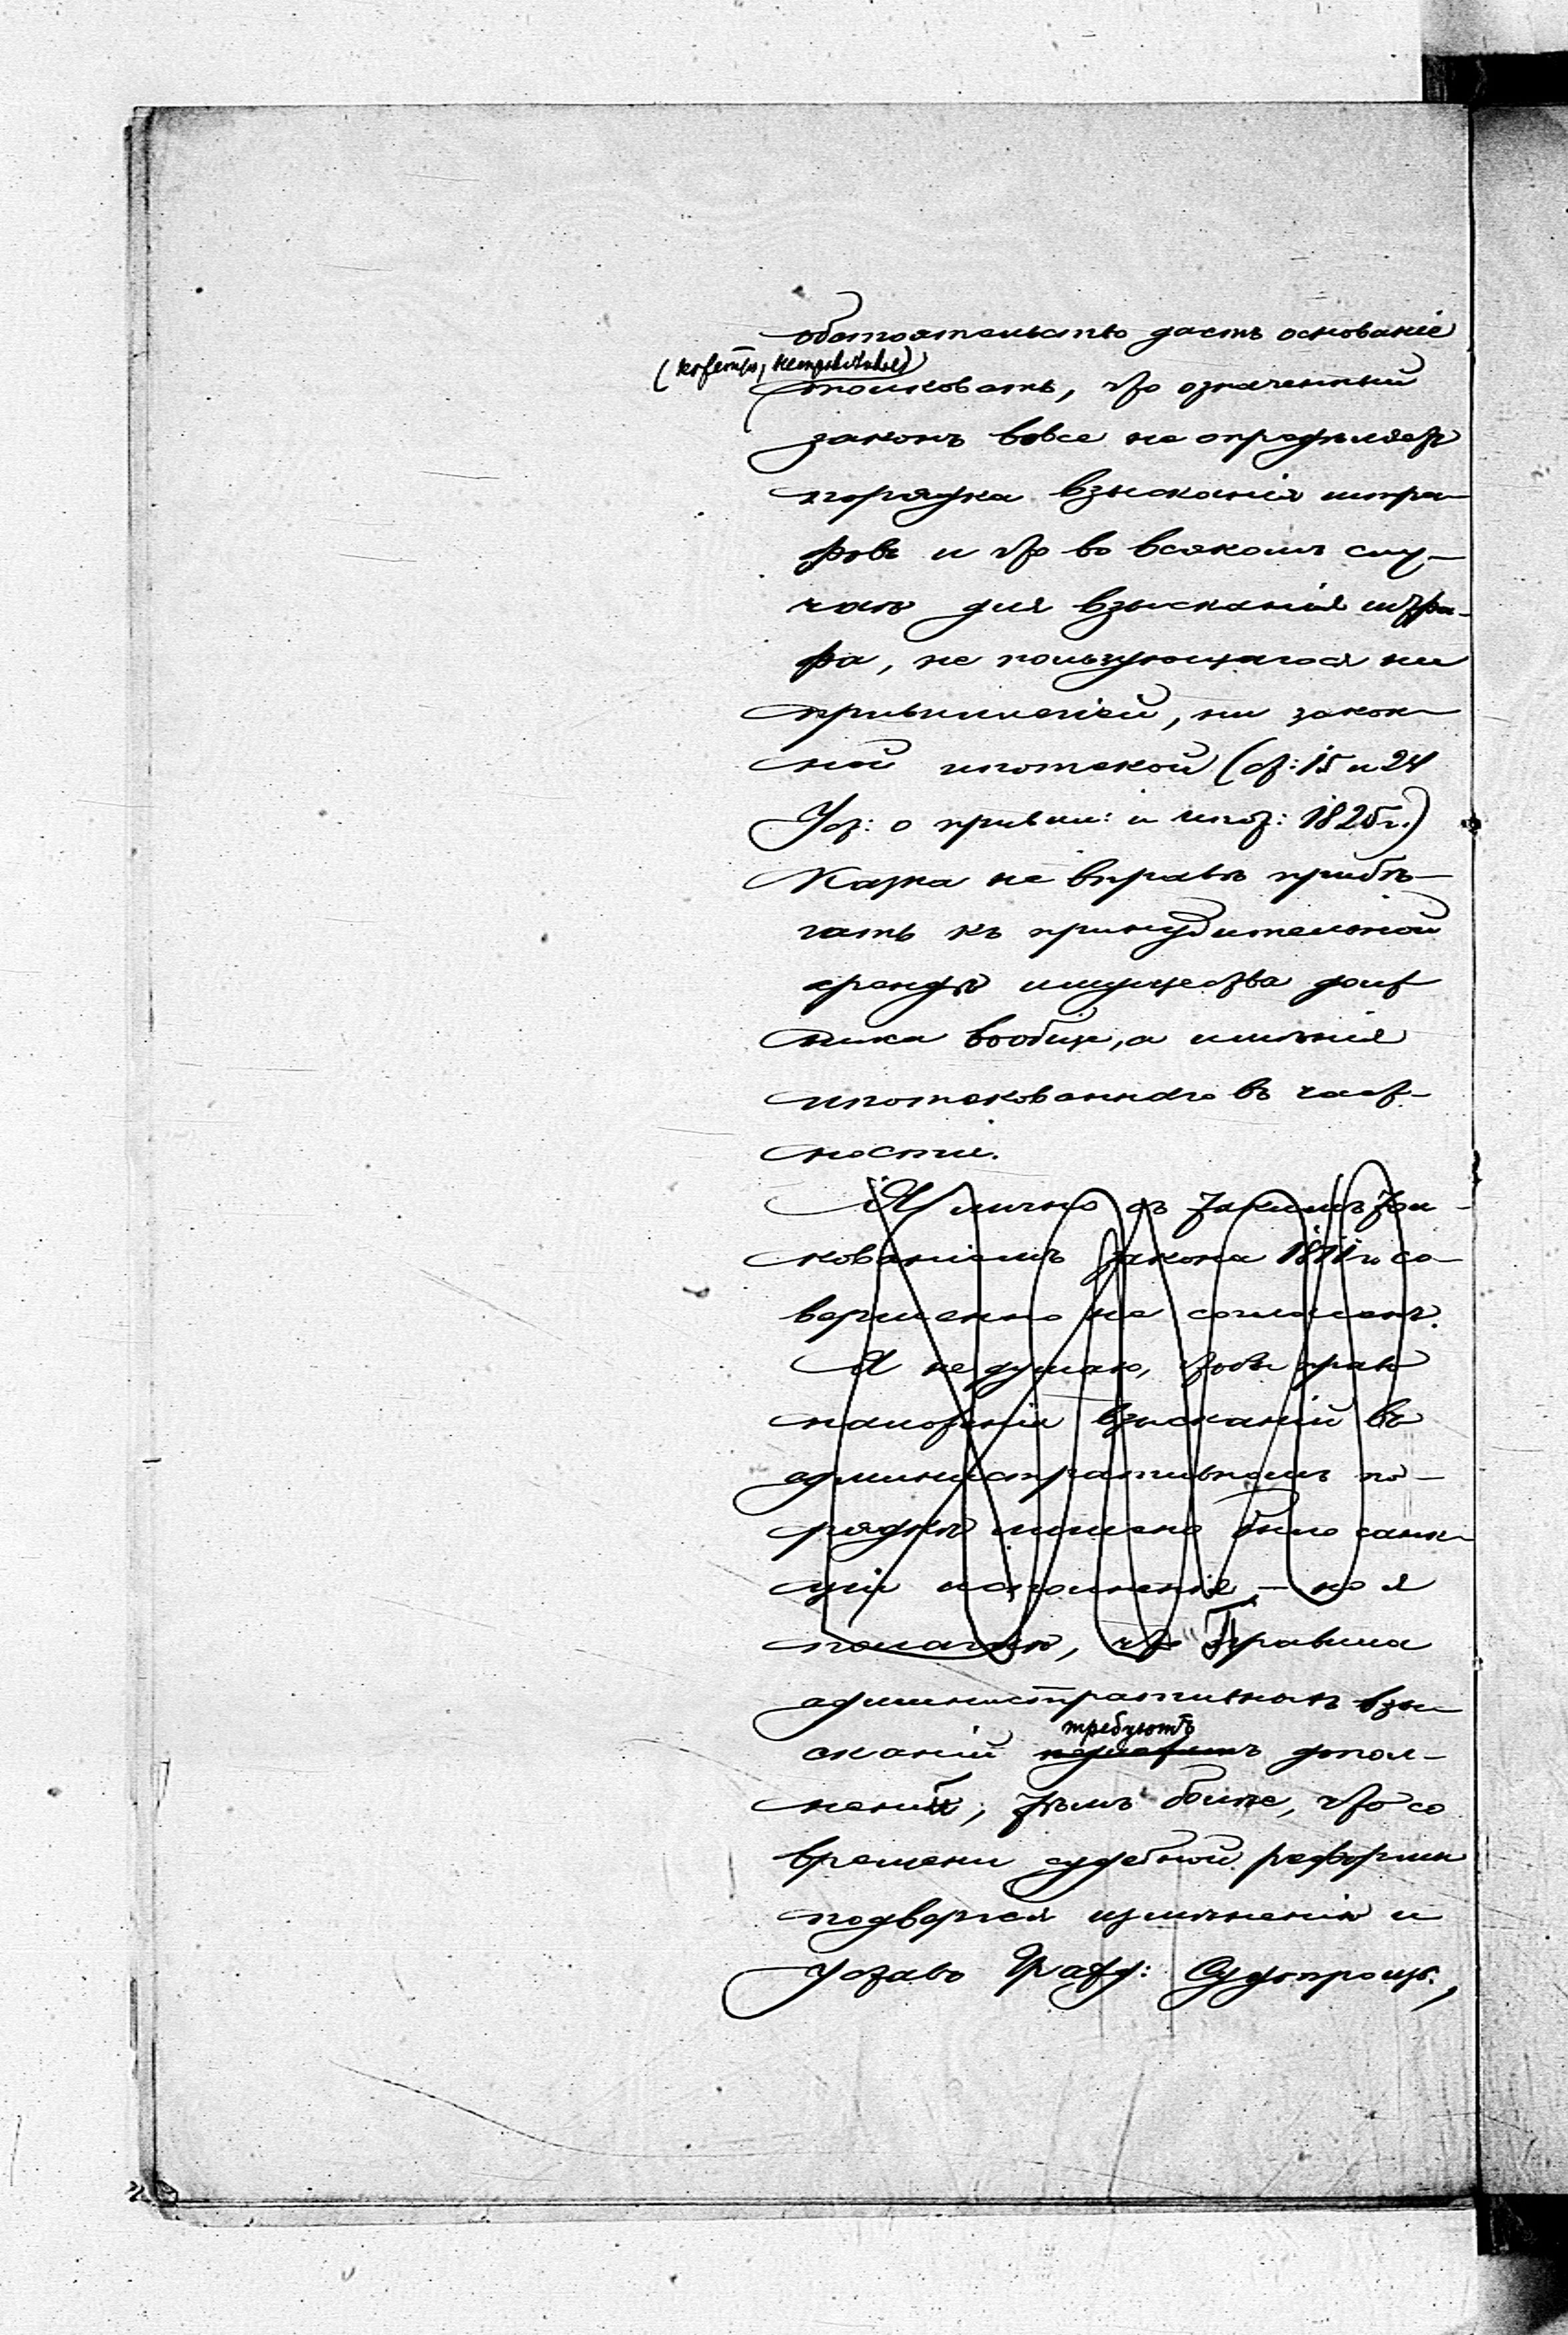 обстоятельство даетъ основаніе
(конечно, неправильное)
толковать, что означенный
законъ вовсе не опредѣляетъ
порядка взысканія штра-
фовъ и что во всякомъ слу-
чаѣ для взысканія штра-
фа, не пользующагося ни
привилегіей, ни закон-
ной ипотекой (ст: 15 и 24
Уст: о привил: и ипот: 1825 г.)
Казна не вправѣ прибѣ-
гать къ принудительной
арендѣ имущества долж
ника вообще, а имѣнія
ипотекованнаго въ част-
ности.
Я лично съ такимъ тол-
кованіемъ закона 1871 г. со-
вершенно не согласенъ.
Я не думаю, чтобы право
наложенія взысканій въ
административномъ по-
рядкѣ лишено было санк-
ціи исполненія, — но я
полагаю, что Правила
административныхъ взы-
сканій требуютъ допол-
неній, тѣмъ болѣе, что со
времени судебной реформы
подвергся измѣненію и
Уставъ Гражд: Судопроиз.,